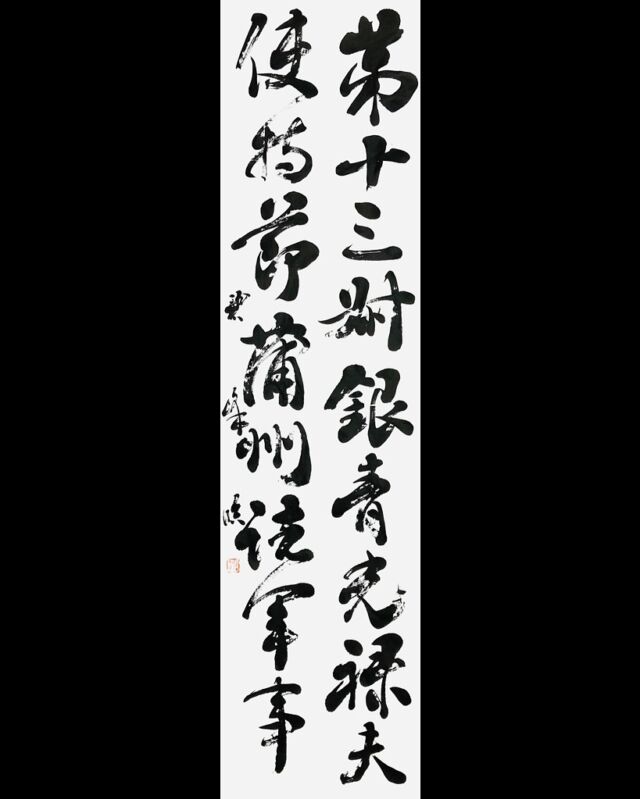 第十三叔銀青光禄夫
使持節蒲州諸軍事